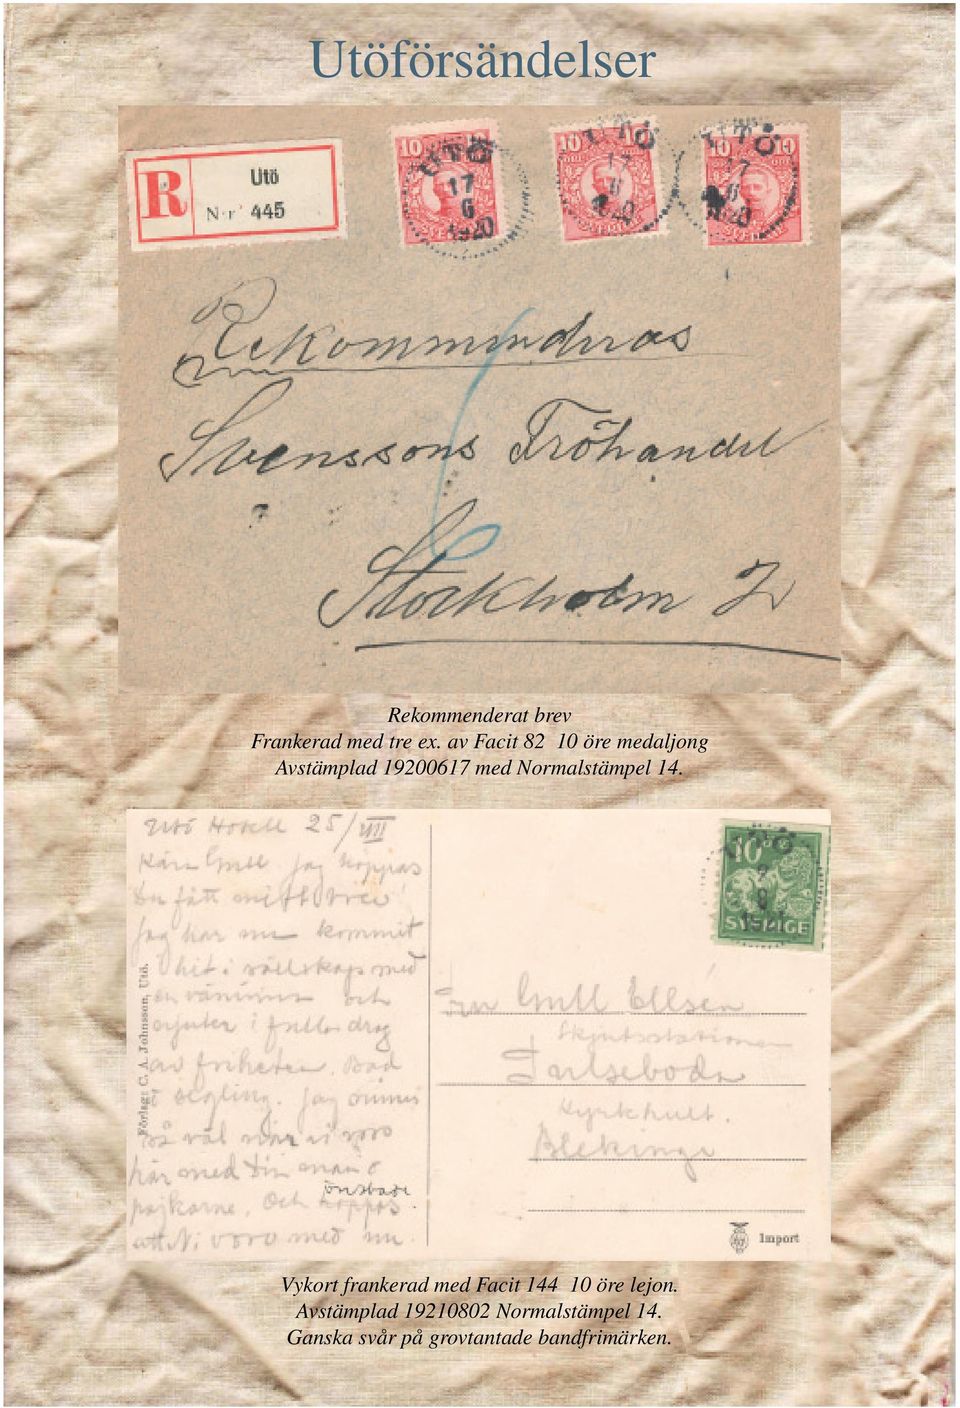 Utöförsändelser
R
Utö
Nr 445
10 10
SVERIGE
UTÖ
17
6
1920
10 10
SVERIGE
UTÖ
17
6
1920
10 10
SVERIGE
UTÖ
17
6
1920
Rekommenderas
Svenssons Fröhandel
Stockholm 2
Rekommenderat brev
Frankerad med tre ex. av Facit 82 10 öre medaljong
Avstämplad 19200617 med Normalstämpel 14.
Utö Hotell 25/VII
Kära Gull jag hoppas
Du fått mitt brev
Jag har nu kommit
hit i sällskap med
en väninna och
njuter i fulla drag
av friheten. Bad
o segling. Jag minns
så väl när vi voro
här med Din man o
pojkarne. Och hoppas
önskade
att Ni voro med nu.
Förlag: C. A. Johnsson, Utö.
10
UTÖ
SVERIGE
Fru Gull Ellsén
Skjutsstationen
Kyrkhult.
Blekinge
Import
Vykort frankerad med Facit 144 10 öre lejon.
Avstämplad 19210802 Normalstämpel 14.
Ganska svår på grovtantade bandfrimärken.